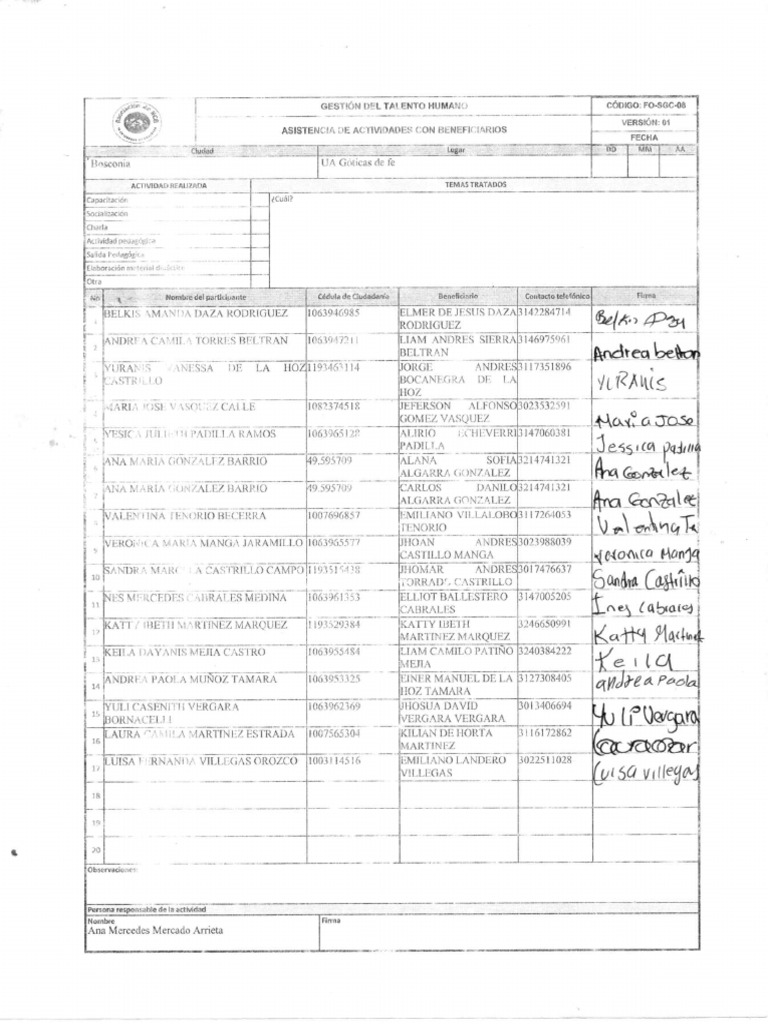 GESTIÓN DEL TALENTO HUMANO
CÓDIGO: FO-SGC-08
ASISTENCIA DE ACTIVIDADES CON BENEFICIARIOS
VERSIÓN: 01
FECHA
Ciudad Lugar DD MM AA
Bosconia UA Goticas de fe
ACTIVIDAD REALIZADA TEMAS TRATADOS
Capacitación ¿Cuál?
Socialización
Charla
Actividad pedagógica
Salida Pedagógica
Elaboración material didáctico
Otra
No Nombre del participante Cédula de Ciudadanía Beneficiario Contacto telefónico Firma
1 BELKIS AMANDA DAZA RODRIGUEZ 1063946985 ELMER DE JESUS DAZA 3142284714 Belkis
RODRIGUEZ
2 ANDREA CAMILA TORRES BELTRAN 1063947211 LIAM ANDRES SIERRA 3146975961 Andrea beltran
BELTRAN
3 YURANIS VANESSA DE LA HOZ 1193463114 JORGE ANDRES 3117351896 YURANIS
CASTRILLO BOCANEGRA DE LA
HOZ
4 MARIA JOSE VASQUEZ CALLE 1082374518 JEFERSON ALFONSO 3023532591 Maria JOSE
GOMEZ VASQUEZ
5 YESICA JULIETH PADILLA RAMOS 1063965128 ALIRIO ECHEVERRI 3147060381 Jessica padilla
PADILLA
6 ANA MARIA GONZALEZ BARRIO 49.595709 ALANA SOFIA 3214741321 Ana Gonzalez
ALGARRA GONZALEZ
7 ANA MARIA GONZALEZ BARRIO 49.595709 CARLOS DANILO 3214741321 Ana Gonzalez
ALGARRA GONZALEZ
8 VALENTINA TENORIO BECERRA 1007696857 EMILIANO VILLALOBO 3117264053 Valentina Te
TENORIO
9 VERONICA MARIA MANGA JARAMILLO 1063965577 JHOAN ANDRES 3023988039 veronica Manga
CASTILLO MANGA
10 SANDRA MARCELA CASTRILLO CAMPO 1193518438 JHOMAR ANDRES 3017476637 Sandra Castrillo
TORRADO CASTRILLO
11 NES MERCEDES CABRALES MEDINA 1063961353 ELLIOT BALLESTERO 3147005205 Ines Cabrales
CABRALES
12 KATTY IBETH MARTINEZ MARQUEZ 1193529384 KATTY IBETH 3246650991 Katty Martinet
MARTINEZ MARQUEZ
13 KEILA DAYANIS MEJIA CASTRO 1063955484 LIAM CAMILO PATIÑO 3240384222 Keila
MEJIA
14 ANDREA PAOLA MUÑOZ TAMARA 1063953325 EINER MANUEL DE LA 3127308405 andrea paola
HOZ TAMARA
15 YULI CASENITH VERGARA 1063962369 JHOSUA DAVID 3013406694 Yuli Vergara
BORNACELLI VERGARA VERGARA
16 LAURA CAMILA MARTINEZ ESTRADA 1007565304 KILIAN DE HORTA 3116172862
MARTINEZ
17 LUISA FERNANDA VILLEGAS OROZCO 1003114516 EMILIANO LANDERO 3022511028 Luisa villegas
VILLEGAS
18
19
20
Observaciones:
Persona responsable de la actividad
Nombre Firma
Ana Mercedes Mercado Arrieta